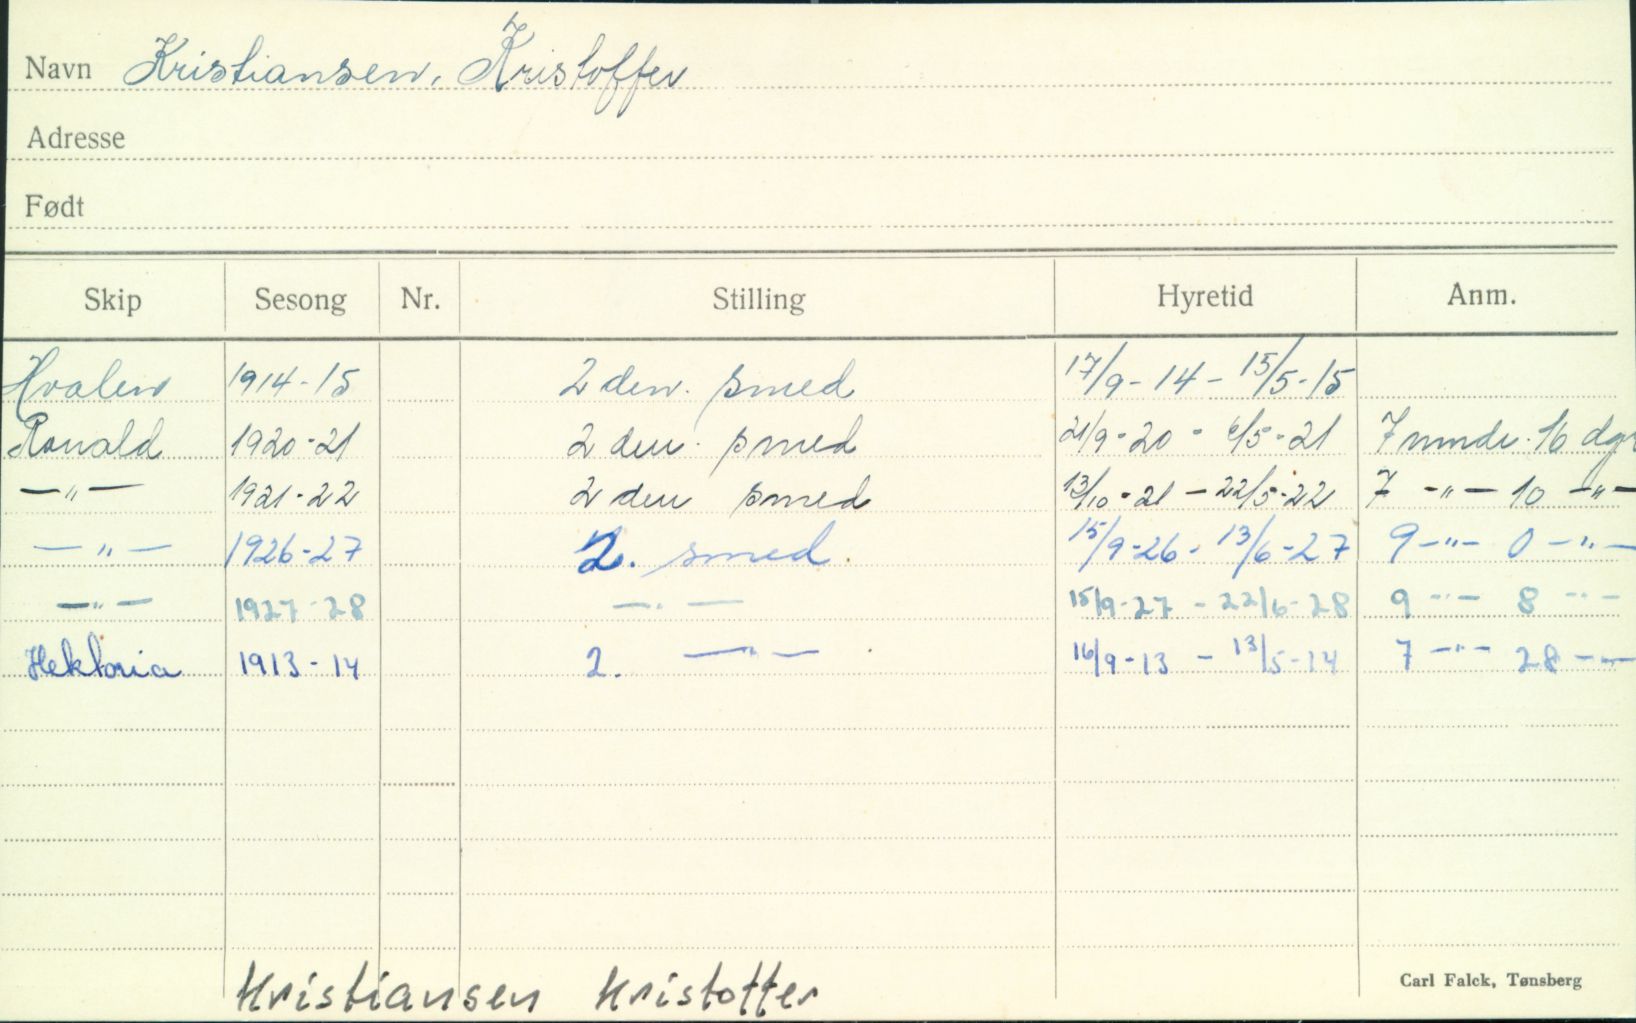 Navn Kristiansen, Kristoffer
Adresse
Født
Skip Sesong Nr. Stilling Hyretid Anm.
Hvalen 1914-15 2den. smed 17/9-14 - 15/5-15
Ronald 1920-21 2den. smed 21/9-20 - 6/5-21 7 mndr. 16 dgr
—„— 1921-22 2den smed 13/10-21 - 22/5-22 7 —„— 10 —„—
—„— 1926-27 2. smed. 15/9-26 - 13/6-27 9 —„— 0 —„—
—„— 1927-28 —„— 15/9-27 - 22/6-28 9 —„— 8 —„—
Hektoria 1913-14 2. —„— 16/9-13 - 13/5-14 7 —„— 28 —„—
Kristiansen Kristoffer
Carl Falck, Tønsberg